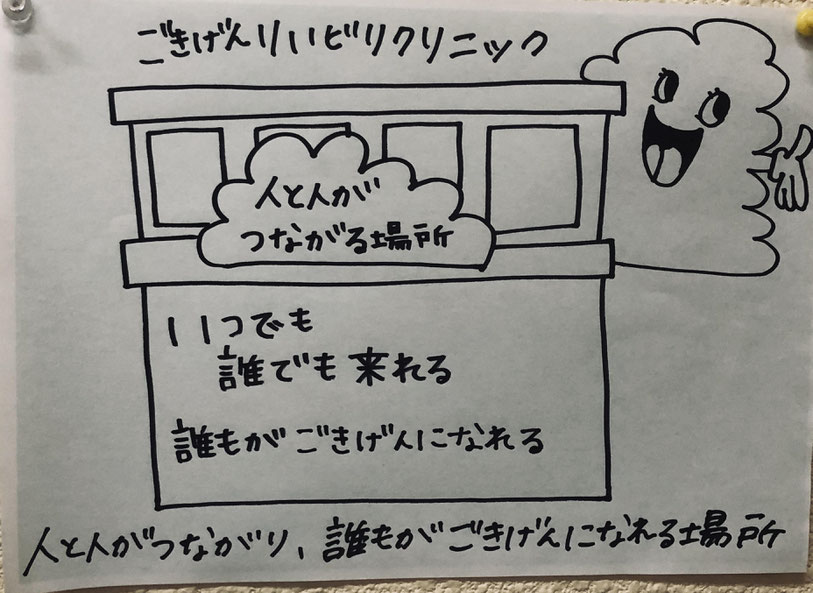 ごきげんりいビリクリニック
人と人が
つながる場所
いつでも
誰でも来れる
誰もがごきげんになれる
人と人がつながり、誰もがごきげんになれる場所